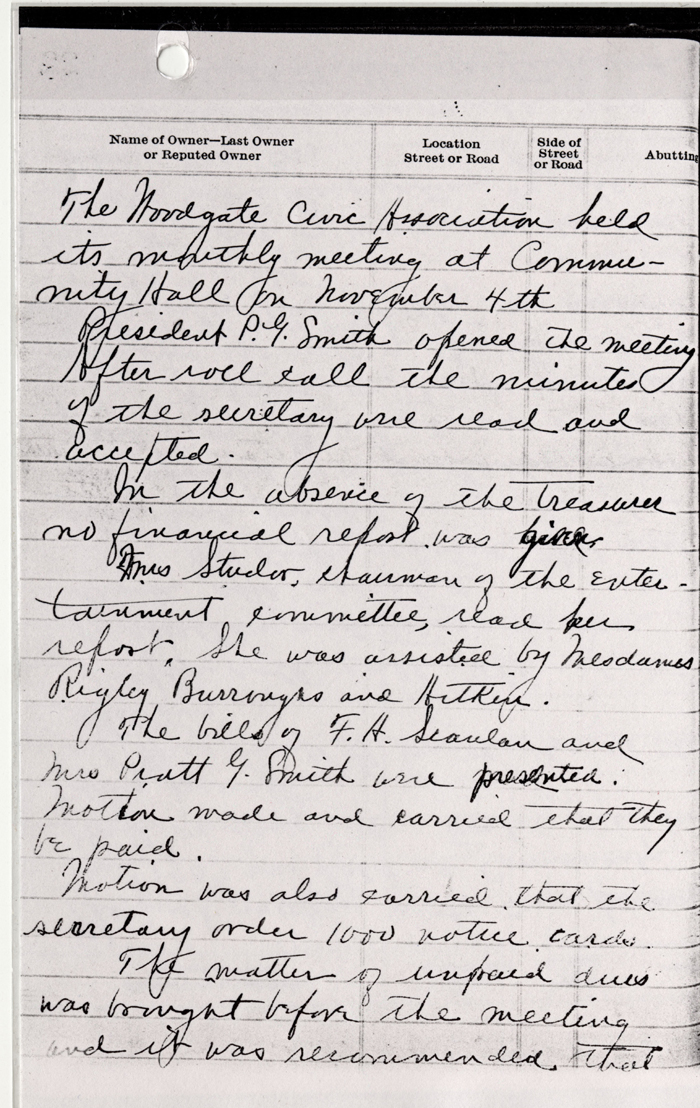 Name of Owner—Last Owner
or Reputed Owner
Location
Street or Road
Side of
Street
or Road
Abutting
The Woodgate Civic Association held
its monthly meeting at Commu-
nity Hall on November 4th
President P. G. Smith opened the meeting
After roll call the minutes
of the secretary were read and
accepted.
In the absence of the treasurer
no financial report was given
Mrs Studor, chairman of the enter-
tainment committee, read her
report. She was assisted by Mesdames
Rigley Burroughs and Aitkin.
The bills of F. H. Scanlan and
Mrs Pratt G. Smith were presented.
Motion made and carried that they
be paid.
Motion was also carried that the
secretary order 1000 notice cards.
The matter of unpaid dues
was brought before the meeting
and it was recommended that